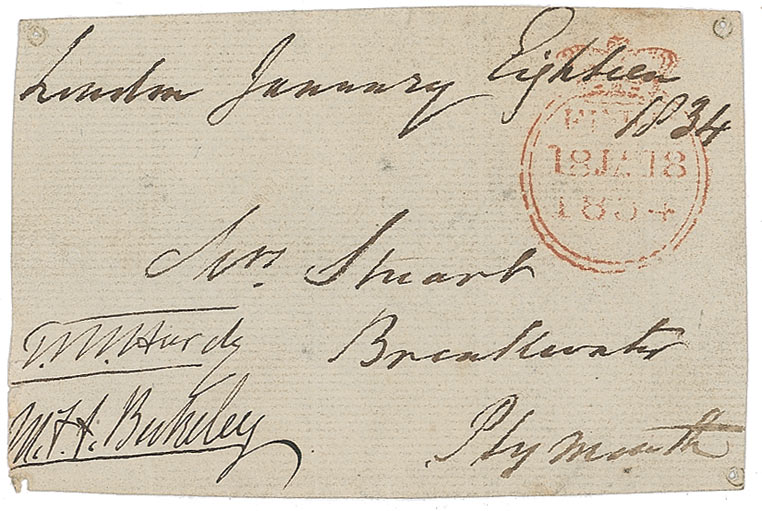 London January Eighteen
1834
FREE
18JA18
1834
Mrs. Stuart
T. M. Hardy
Breakwater
M. F. F. Berkeley
Plymouth